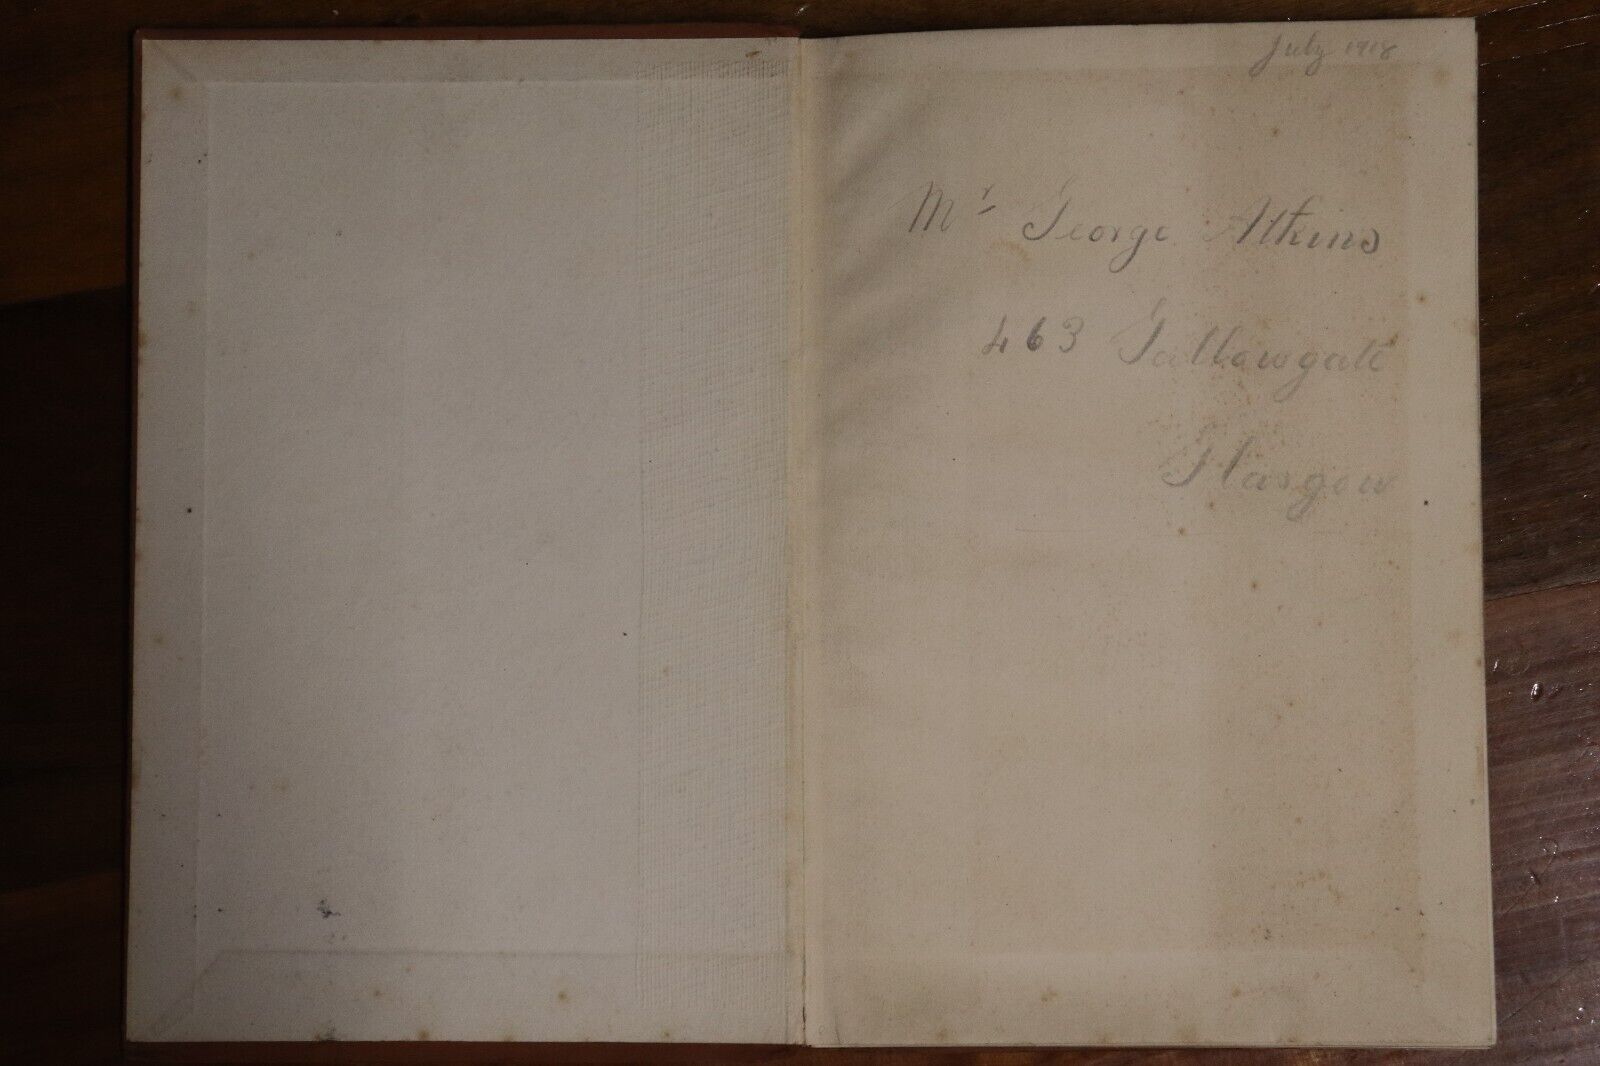 July 1918
Mr George Atkins
463 Gallowgate
Glasgow